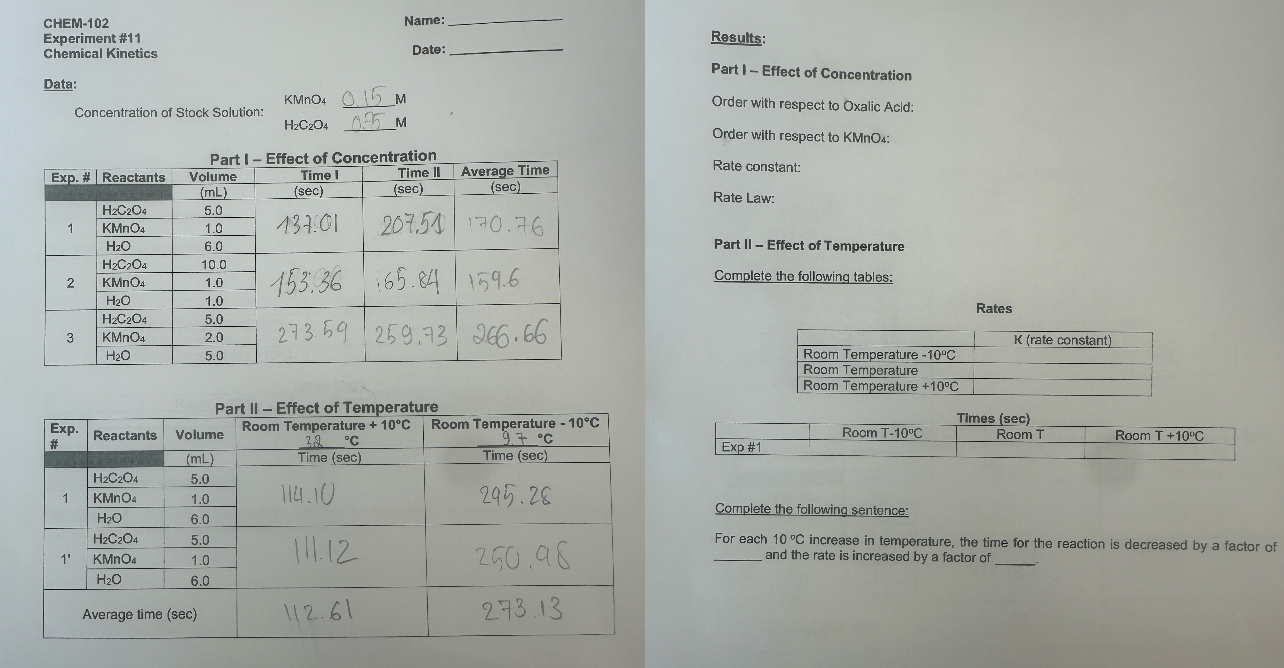 CHEM-102
Experiment #11
Chemical Kinetics
Name:
Date:
Data:
Concentration of Stock Solution:
KMnO4 0.15 M
H2C2O4 0.75 M
Part I – Effect of Concentration
Exp. # Reactants Volume Time I Time II Average Time
(mL) (sec) (sec) (sec)
H2C2O4 5.0
1 KMnO4 1.0 207.51 170.76
H2O 6.0
H2C2O4 10.0
2 KMnO4 1.0 153.36 165.84 159.6
H2O 1.0
H2C2O4 5.0
3 KMnO4 2.0 273.59 259.73 266.66
H2O 5.0
Part II – Effect of Temperature
Exp. # Reactants Volume Room Temperature + 10ºC Room Temperature - 10ºC
ºC 9.7 ºC
(mL) Time (sec) Time (sec)
H2C2O4 5.0
1 KMnO4 1.0 114.10 295.28
H2O 6.0
H2C2O4 5.0
1' KMnO4 1.0 111.12 250.98
H2O 6.0
Average time (sec) 112.61 273.13
Results:
Part I – Effect of Concentration
Order with respect to Oxalic Acid:
Order with respect to KMnO4:
Rate constant:
Rate Law:
Part II – Effect of Temperature
Complete the following tables:
Rates
K (rate constant)
Room Temperature -10ºC
Room Temperature
Room Temperature +10ºC
Times (sec)
Room T-10ºC Room T Room T +10ºC
Exp #1
Complete the following sentence:
For each 10 ºC increase in temperature, the time for the reaction is decreased by a factor of
and the rate is increased by a factor of .